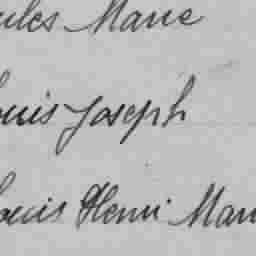 ules Marie
ouis Joseph
ouis Henri Mari